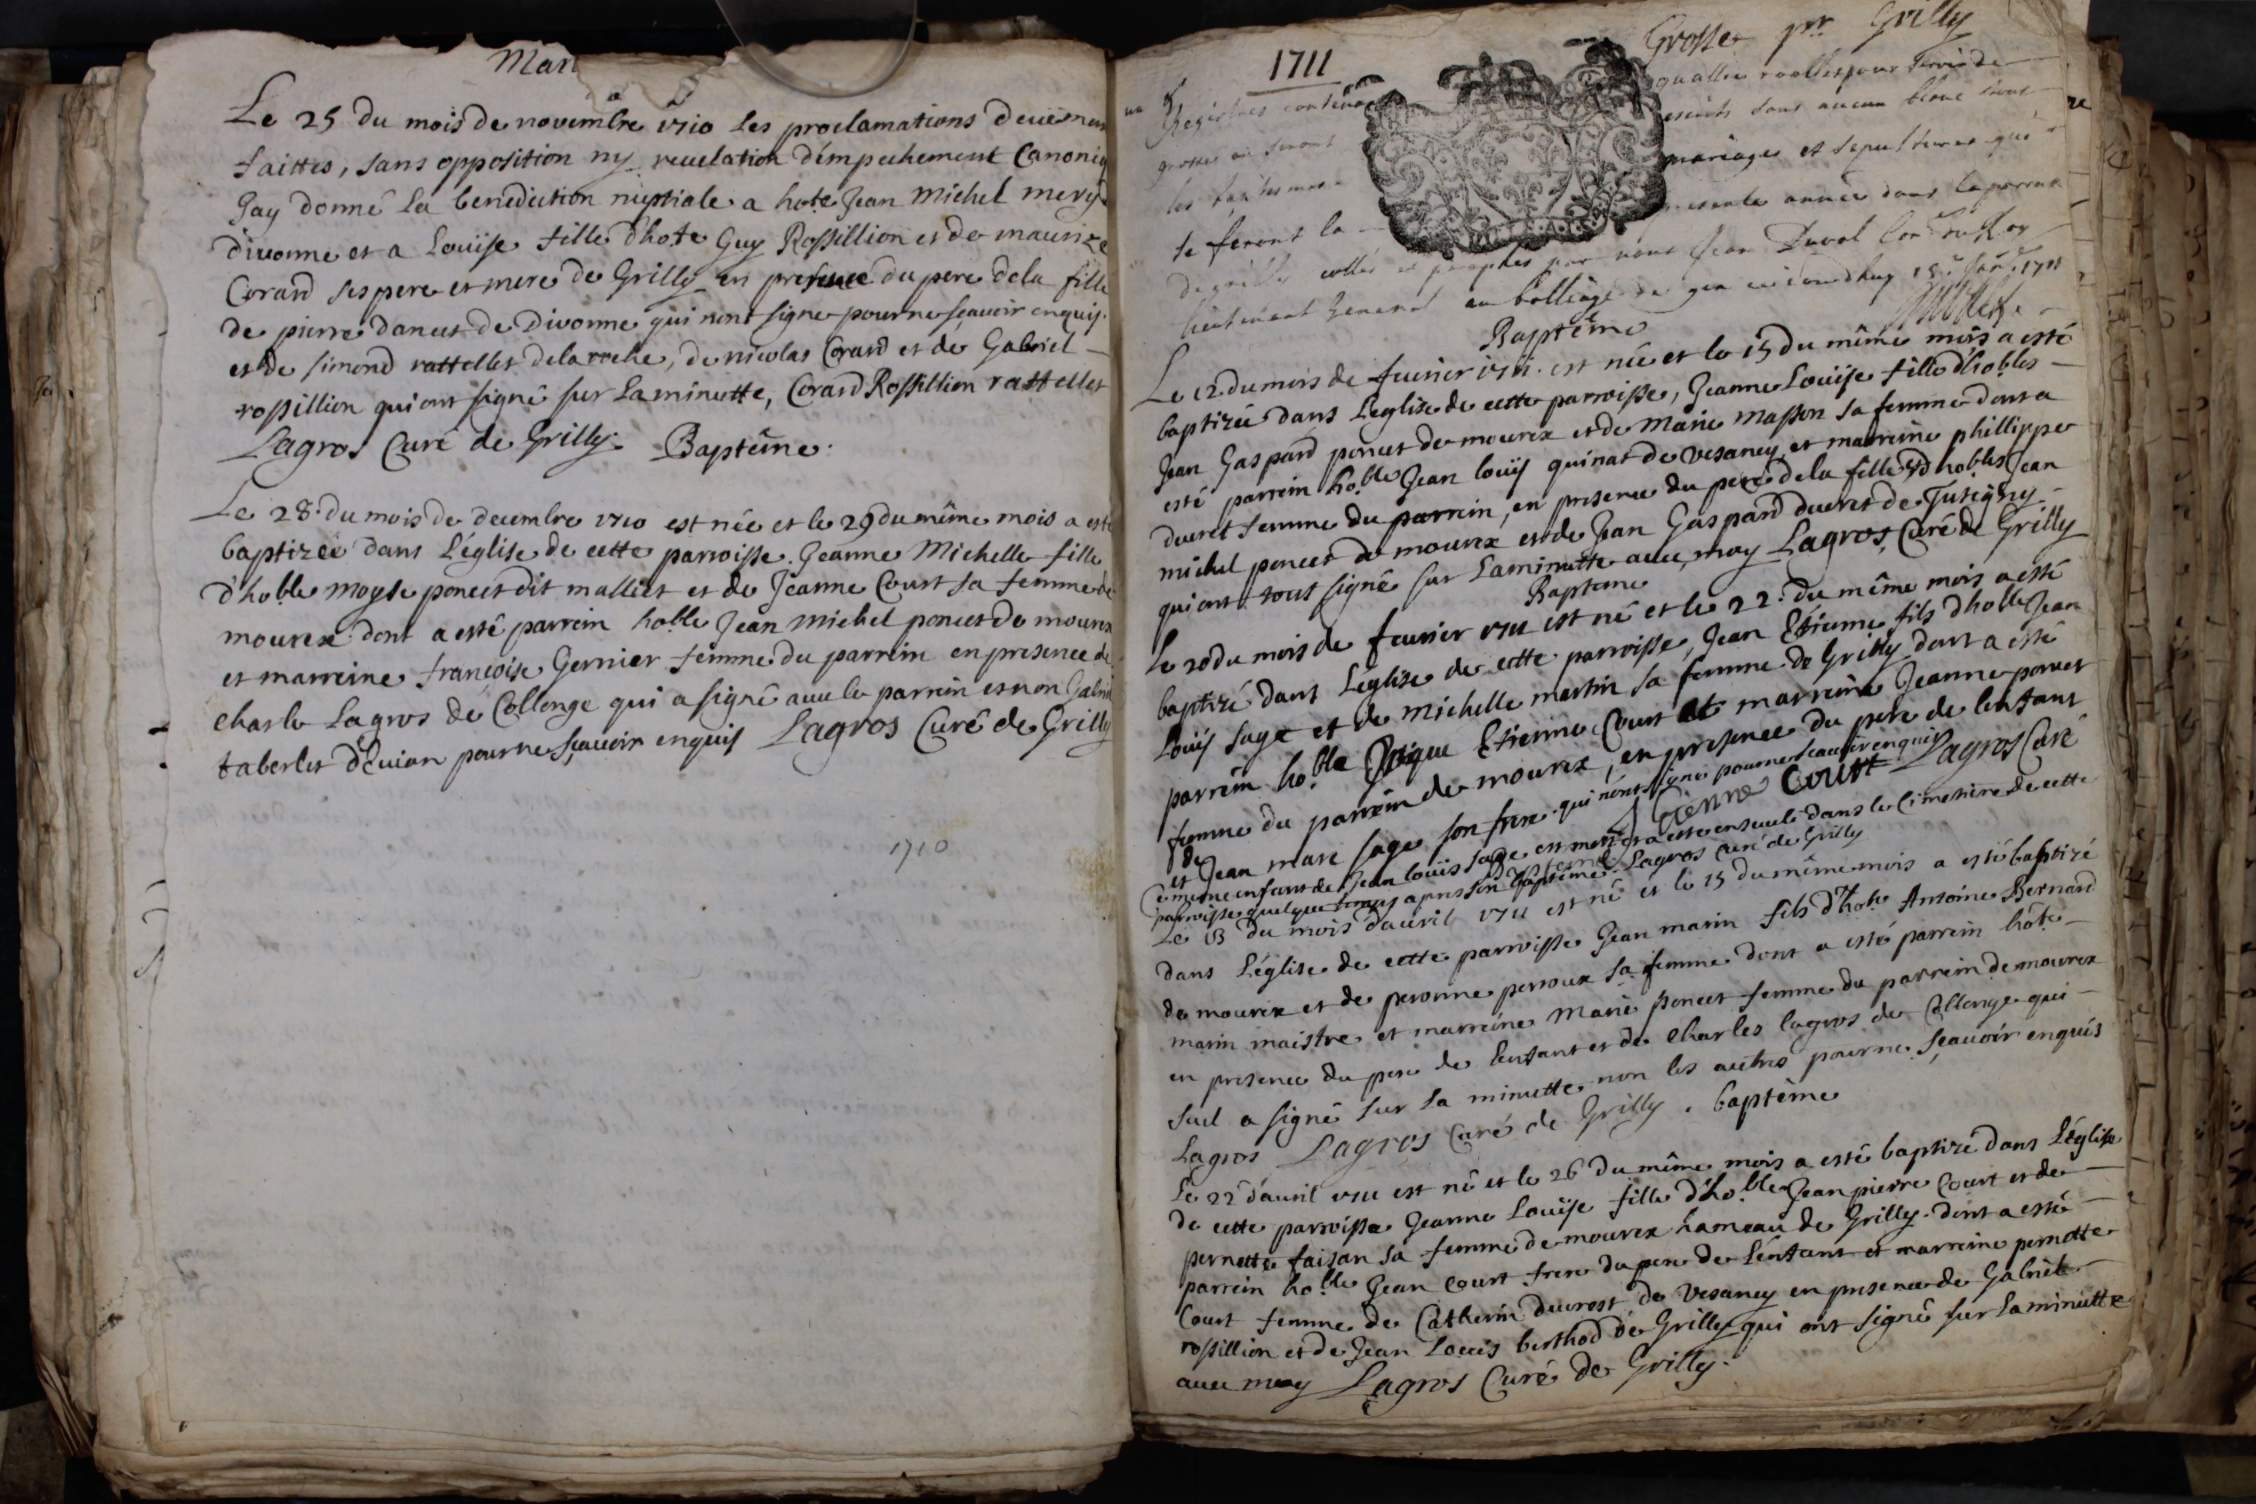 Mari
Le 25 du mois de novembre 1710 les proclamations deuëmen
faittes, sans opposition ny reuelation d'empechement Canoniq
Jay donné la benediction nuptiale a hote Jean Michel mery
divonne et a Louïse fille d'hote Guy Rossillion et de maurize
Corard ses pere et mere de Grilly en presence du pere dela fille
de pierre dancet de Divonne qui nont signe pour ne sçauoir enquis.
et de simond rattellet delaroche, de nicolas Corard et de Gabriel
rossillion qui ont signé sur la minutte, Corard Rossillion rattellet
Lagros Curé de Grilly. Baptême.
Le 28. du mois de decembre 1710 est née et le 29 du même mois a esté
baptizeé dans L'église de cette parroisse. Jeanne Michelle fille
d'hoble moyse poncet dit malliet et de Jeanne Court sa femme de
mourex. dont a esté parrein hoble Jean Michel poncet de mourex
et marreine françoise Gernier femme du parrein en presence de
charle Lagros de Collonge qui a signé auec le parrein et non
taberlet d'Euian pour ne sçauoir enquis Lagros Curé de Grilly
1710
1711
Grosse pr Grilly
Registres contena quattre roolles pour seruir de
grosses ou seront escrits sans aucun blanc
les baptesmes mariages et sepultures qui
se feront la presente année dans la parroisse
de grilly cottés et paraphés par nous Jean Duval
lieutenant General au balliage de gex ce jourdhuy 15e Janr 1711
Baptême
Le 12 du mois de feurier 1711. est née et le 15 du même mois a esté
baptizée dans Leglise de cette parroisse, Jeanne Louïse fille d'hobles
Jean Gaspard poncet de mourex et de Marie Masson sa femme dont a
esté parrein hoble Jean louïs quinat de vesancy, et marreine phillippe
ducret femme du parrein, en presence du pere de la fille & d'hobles Jean
michel poncet de mourex et de Jean Gaspard ducret de Tutegny
qui ont tous signé sur la minutte auec moy Lagros, Curé de Grilly
Baptême
Le 20 du mois de feurier 1711 est né et le 22. du même mois a esté
baptizé dans Leglise de cette parroisse, Jean Etienne fils d'hoble Jean
Louïs sage et de Michelle martin sa femme de Grilly dont a esté
parrein hoble Etienne Court et marreine Jeanne poncet
femme du parrein de mourex, en presence du pere de lenfant
et de Jean marc sage son frere qui nont signé pour ne sçauoir enquis
Etienne Court Lagros Curé
Ce même enfant de Jean louïs sage est mort et a esté enseueli dans le Cimetiere de cette
parroisse quelque temps apres son baptême Lagros curé de Grilly
Le 13 du mois d'auril 1711 est né et le 15 du même mois a esté baptizé
dans L'église de cette parroisse Jean marin fils d'hote Antoine Bernard
de mourex et de peronne perroux sa femme dont a esté parrein hôte
marin maistre et marreine Marie poncet femme du parrein de mourex
en presence du pere de l'enfant et de Charles lagros de Collonge qui
seul a signé sur la minutte non les autres pour ne sçauoir enquis
Lagros Lagros Curé de Grilly. baptême
Le 22 d'auril 1711 est né et le 26 du même mois a esté baptizé dans L'église
de cette parroisse Jeanne Louïse fille d'hoble Jean pierre Court et de
pernette faisan sa femme de mourex hameau de Grilly. dont a esté
parrein hoble Jean Court frere du pere de l'enfant et marreine pernette
Court femme de Catherin ducrest de Vesancy en presence de Gabriel
rossillion et de Jean Louis berthod de Grilly qui ont signé sur la minutte
auec moy Lagros Curé de Grilly.